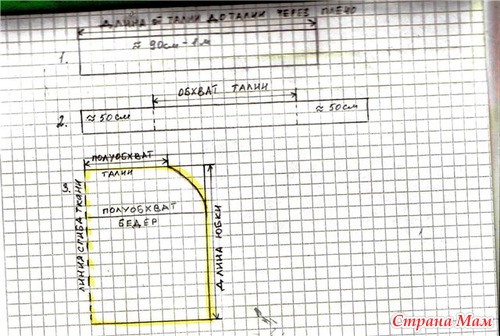 ДЛИНА ОТ ТАЛИИ ДО ТАЛИИ ЧЕРЕЗ ПЛЕЧО
1.
≈ 90см - 1м
ОБХВАТ ТАЛИИ
2.
≈ 50см
≈ 50см
ПОЛУОБХВАТ
ТАЛИИ
3.
ЛИНИЯ СГИБА ТКАНИ
ПОЛУОБХВАТ
БЕДЕР
ДЛИНА ЮБКИ
Страна Мам